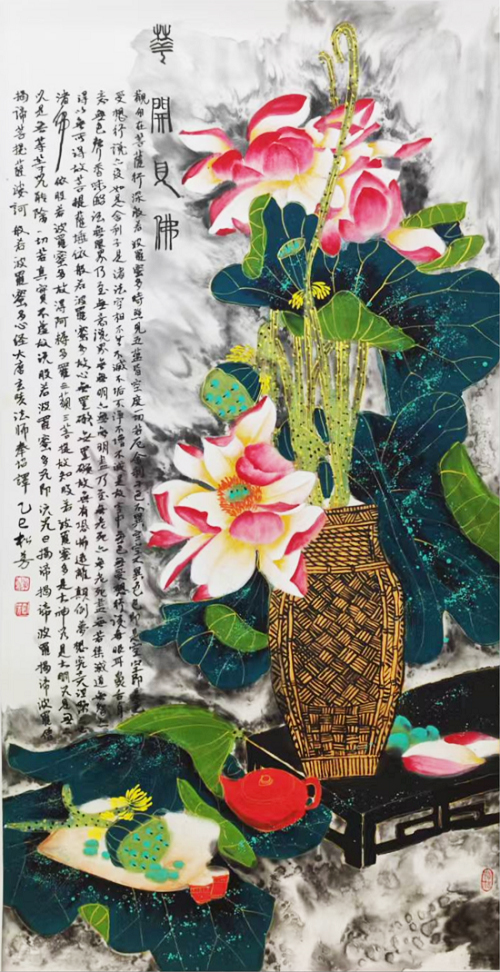 華開見佛
觀自在菩薩行深般若波羅蜜多時照見五蘊皆空度一切苦厄舍利子色不異空空不異色色即是空空即是色
受想行識亦復如是舍利子是諸法空相不生不滅不垢不淨不增不減是故空中無色無受想行識無眼耳鼻舌身
意無色聲香味觸法無眼界乃至無意識界無無明亦無無明盡乃至無老死亦無老死盡無苦集滅道無智亦無
得以無所得故菩提薩埵依般若波羅蜜多故心無罣礙無罣礙故無有恐怖遠離顛倒夢想究竟涅槃三世
諸佛依般若波羅蜜多故得阿耨多羅三藐三菩提故知般若波羅蜜多是大神咒是大明咒是無
上咒是無等等咒能除一切苦真實不虛故說般若波羅蜜多咒即說咒曰揭諦揭諦波羅揭諦波羅僧
揭諦菩提薩婆訶般若波羅蜜多心經大唐玄奘法師奉詔譯乙巳松芳